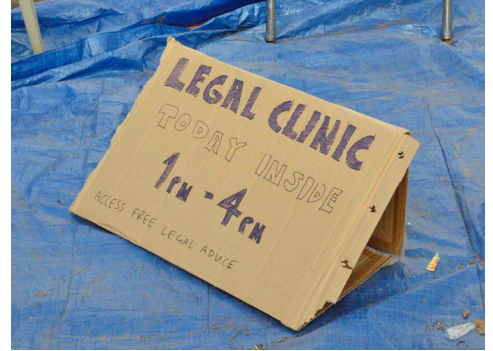 LEGAL CLINIC
TODAY INSIDE
1PM - 4PM
ACCESS FREE LEGAL ADVICE